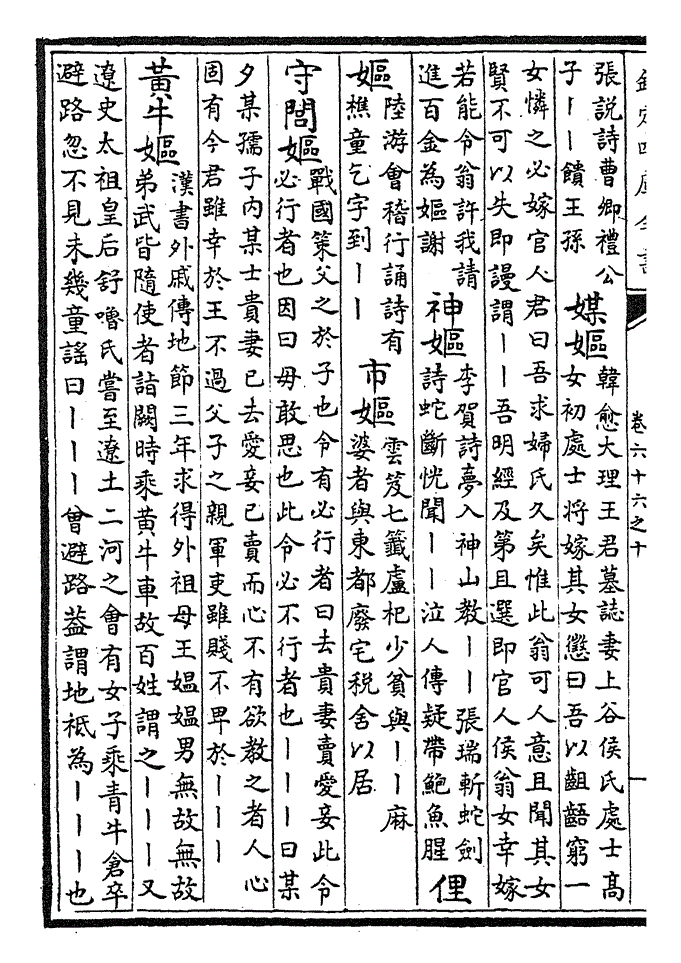 欽定四庫全書
卷六十六之十
張說詩曹卿禮公
子丨丨饋王孫
媒嫗
韓愈大理王君墓誌妻上谷侯氏處士高
女初處士将嫁其女懲曰吾以齟齬窮一
女憐之必嫁官人君曰吾求婦氏久矣惟此翁可人意且聞其女
賢不可以失即謾謂丨丨吾明經及第且選即官人侯翁女幸嫁
若能令翁許我請
進百金為嫗謝
神嫗
李賀詩夢入神山教丨丨張瑞斬蛇劍
詩蛇斷恍聞丨丨泣人傳疑帶鮑魚腥
俚
嫗
陸游會稽行誦詩有
樵童乞字到丨丨
市嫗
雲笈七籤盧杞少貧與丨丨麻
婆者與東都廢宅税舍以居
守閭嫗
戰國策父之於子也令有必行者曰去貴妻賣愛妾此令
必行者也因曰毋敢思也此令必不行者也丨丨丨曰某
夕某孺子内某士貴妻已去愛妾已賣而心不有欲教之者人心
固有今君雖幸於王不過父子之親軍吏雖賤不卑於丨丨丨
黃牛嫗
漢書外戚傳地節三年求得外祖母王媪媪男無故無故
弟武皆隨使者詣闕時乘黄牛車故百姓謂之丨丨丨又
遼史太祖皇后舒嚕氏嘗至遼土二河之會有女子乘青牛倉卒
避路忽不見未幾童謡曰丨丨丨曾避路葢謂地祇為丨丨丨也